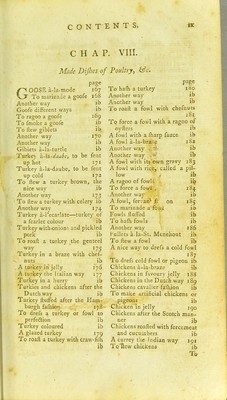 CONTENTS.
CHAP. VIII.
Made Dishes of Poultry, &c.
page
GOOSE à-la-mode 167
To marinade a goose 168
Another way ib
Goose different ways ib
To ragoo a goose 169
To smoke a goose ib
To stew giblets ib
Another way 170
Another way ib
Giblets à-la-turtle ib
Turkey à-la-daube, to be sent
up hot 171
Turkey à-la-daube, to be sent
up cold 172
To stew a turkey brown, the
nice way ib
Another way ib
To stew a turkey with celery ib
Another way 174
Turkey à-l'ecarlate—turkey of
a scarlet colour ib
Turkey with onions and pickled
pork ib
To roast a turkey the genteel
way 175
Turkey in a braze with chef-
nuts ib
A turkey in jelly 176
A turkey the Italian way 177
Turkey in a hurry ib
Turkies and chickens after the
Dutch way ib
Turkey stuffed after the Ham-
burgh fashion 178
To dress a turkey or fowl to
perfection ib
Turkey coloured ib
A glazed turkey 179
To roast a turkey with craw-fish
ib
page
To hash a turkey 180
Another way ib
Another way ib
To roast a fowl with chesnuts
181
To force a fowl with a ragoo of
oysters ib
A fowl with a sharp sauce ib
A fowl à-la-braise 182
Another way ib
Another way ib
A fowl with its own gravy 183
A fowl with rice, called a pil-
low ib
A ragoo of fowls ib
To force a fowl 184
Another way ib
A fowl, 185
To marinade a fowl ib
Fowls stuffed ib
To hash fowls ib
Another way 186
Pullets à-la-St. Menehout ib
To stew a fowl ib
A nice way to dress a cold fowl
187
To dress cold fowl or pigeon ib
Chickens à-la-braze ib
Chickens in savoury jelly 188
Chickens in the Dutch way 189
Chickens cavalier fashion ib
To make artificial chickens or
pigeons ib
Chicken in jelly 190
Chickens after the Scotch man-
ner ib
Chickens roasted with forcemeat
and cucumbers ib
A currey the Indian way 191
To stew chickens ib
To